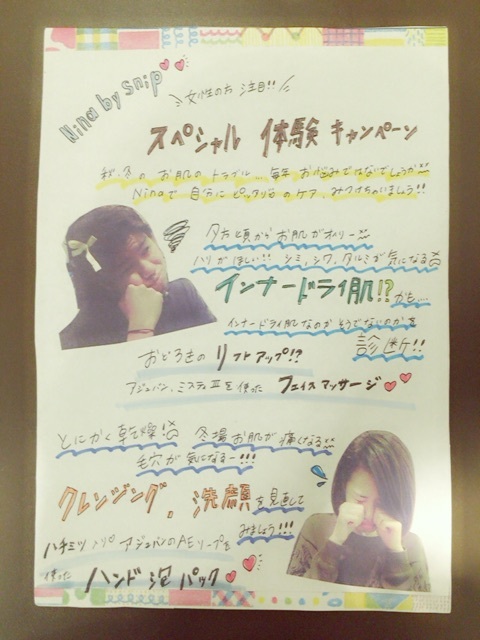 Nina by snip
女性のお注目!!
スペシャル 体験 キャンペーン
秋、冬の お肌のトラブル... 毎年 お悩みではないでしょうか
Ninaで 自分に ピッタリのケア、みつけちゃいましょう!!
夕方頃からお肌がオイリー
ハリがほしい!! シミ、シワ、タルミが気になる
インナードライ肌!? かも...
インナードライ肌なのかそうでないのかを
診断!!
おどろきの リフトアップ!?
アジュバン、ミスティⅢを使った フェイスマッサージ
とにかく乾燥! 冬場お肌が痛くなる
毛穴が気になるー!!!
クレンジング、洗顔を見直して
みましょう!!!
ハチミツ入り アジュバンのAEソープを
使った ハンド泡パック